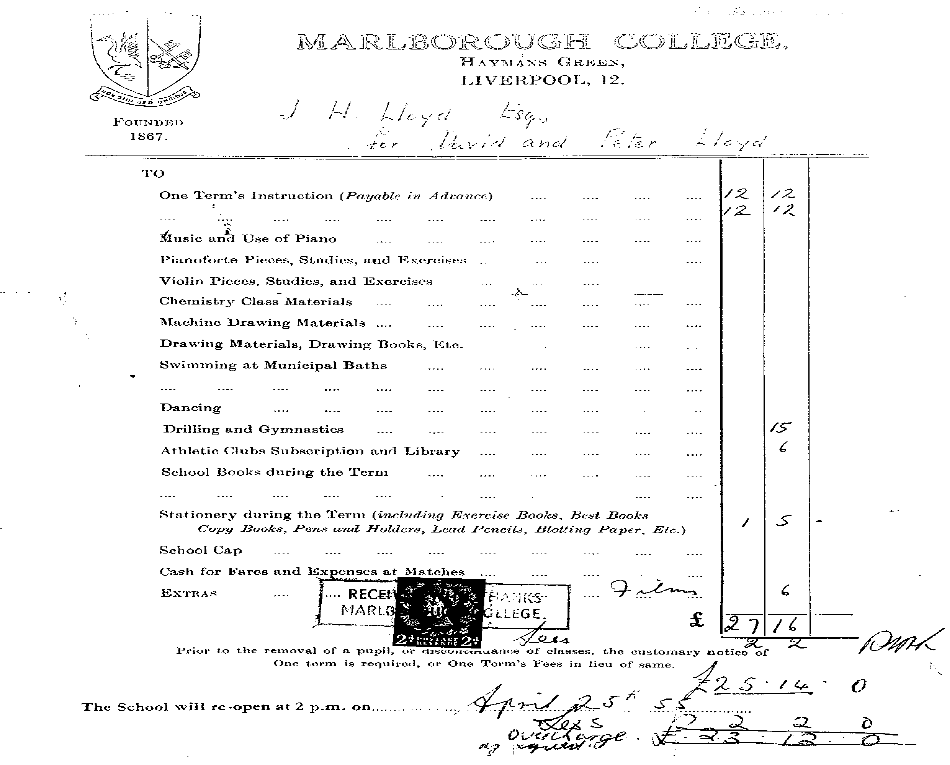 MARLBOROUGH COLLEGE.
HAYMANS GREEN,
LIVERPOOL, 12.
FOUNDED
1867.
J H. Lloyd Esq.
for David and Peter Lloyd
TO
One Term's Instruction (Payable in Advance) .... .... .... .... 12 12
.... .... .... .... .... .... .... .... .... .... .... 12 12
Music and Use of Piano .... .... .... .... .... .... ....
Pianoforte Pieces, Studies, and Exercises .. .... .... .... ....
Violin Pieces, Studies, and Exercises .... .. ....
Chemistry Class Materials .... .... .... .... ....
Machine Drawing Materials .... .... .... .... .... ....
Drawing Materials, Drawing Books, Etc. .... ....
Swimming at Municipal Baths .... .... .... .... .... ....
.... .... .... .... .... .... .... .... .... .... ....
Dancing .... .... .... .... .... .... ....
Drilling and Gymnastics .... .... .... .... .... .... .... 15
Athletic Clubs Subscription and Library .... .... .... .... .... 6
School Books during the Term .... .... .... .... .... ....
.... .... .... .... .... .... .... .... .... ....
Stationery during the Term (including Exercise Books, Best Books
Copy Books, Pens and Holders, Lead Pencils, Blotting Paper, Etc.) 1 5 -
School Cap .... .... .... .... .... .... .... .... ....
Cash for Fares and Expenses at Matches .... .... .... .... ....
EXTRAS .... .... .... Films 6
MARLB COLLEGE.
£ 27 16
Less 2 2
Prior to the removal of a pupil, or discontinuance of classes, the customary notice of
One term is required, or One Term's Fees in lieu of same.
£25.14. 0
The School will re-open at 2 p.m. on April 25th 55
Less 2 2 0
overcharge. £ 23 12 0